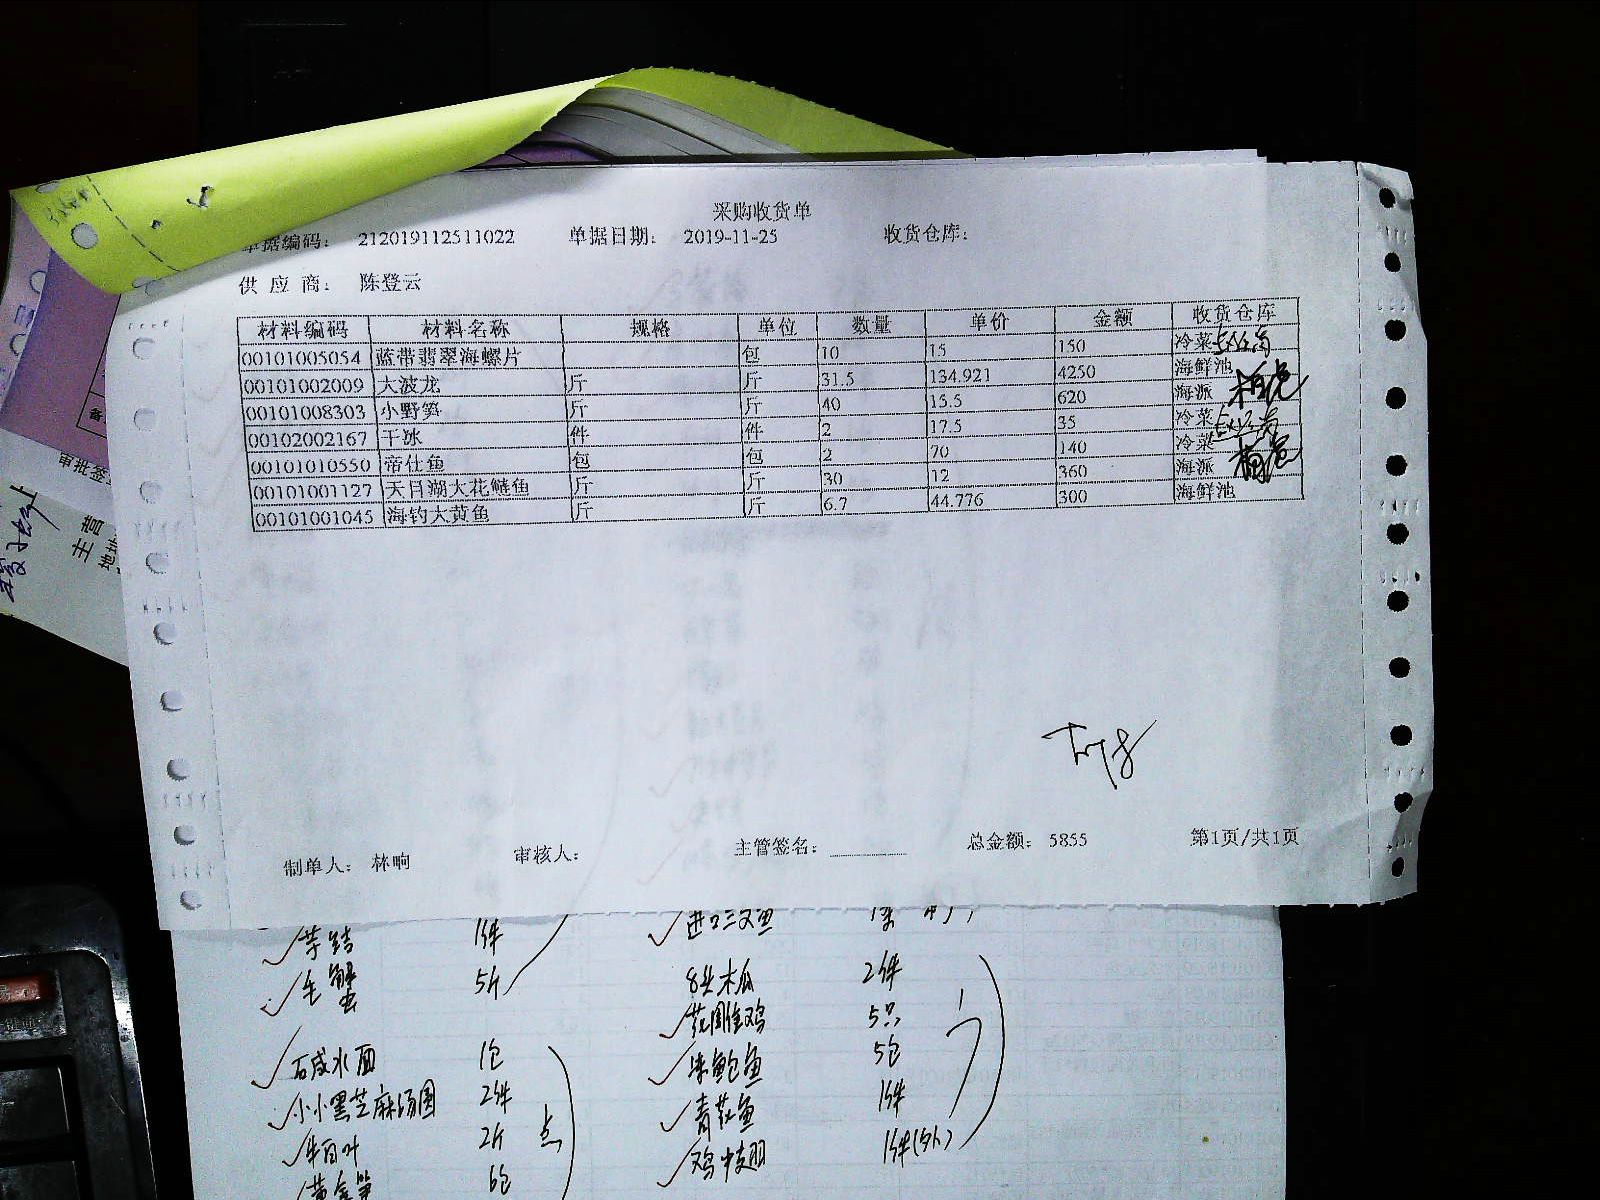 采购收货单
单据编码： 212019112511022 单据日期： 2019-11-25 收货仓库：
供 应 商： 陈登云
材料编码 材料名称 规格 单位 数量 单价 金额 收货仓库
00101005054 蓝带翡翠海螺片 包 10 15 150 冷菜
00101002009 大波龙 斤 斤 31.5 134.921 4250 海鲜池
00101008303 小野笋 斤 斤 40 15.5 620 海派
00102002167 干冰 件 件 2 17.5 35 冷菜
00101010550 帝仕鱼 包 包 2 70 140 冷菜
00101001127 天目湖大花鲢鱼 斤 斤 30 12 360 海派
00101001045 海钓大黄鱼 斤 斤 6.7 44.776 300 海鲜池
制单人： 林晌 审核人： 主管签名： 总金额： 5855 第1页/共1页
芋结 1件 进口三文鱼 1条
毛蟹 5斤 8头木瓜 2件
花雕鸡 5只
碱水面 1包 鲍鱼 5包
小小黑芝麻汤圆 2件 青花鱼 1件
牛百叶 2斤 点 鸡中翅 1件
6包
审批签
主管